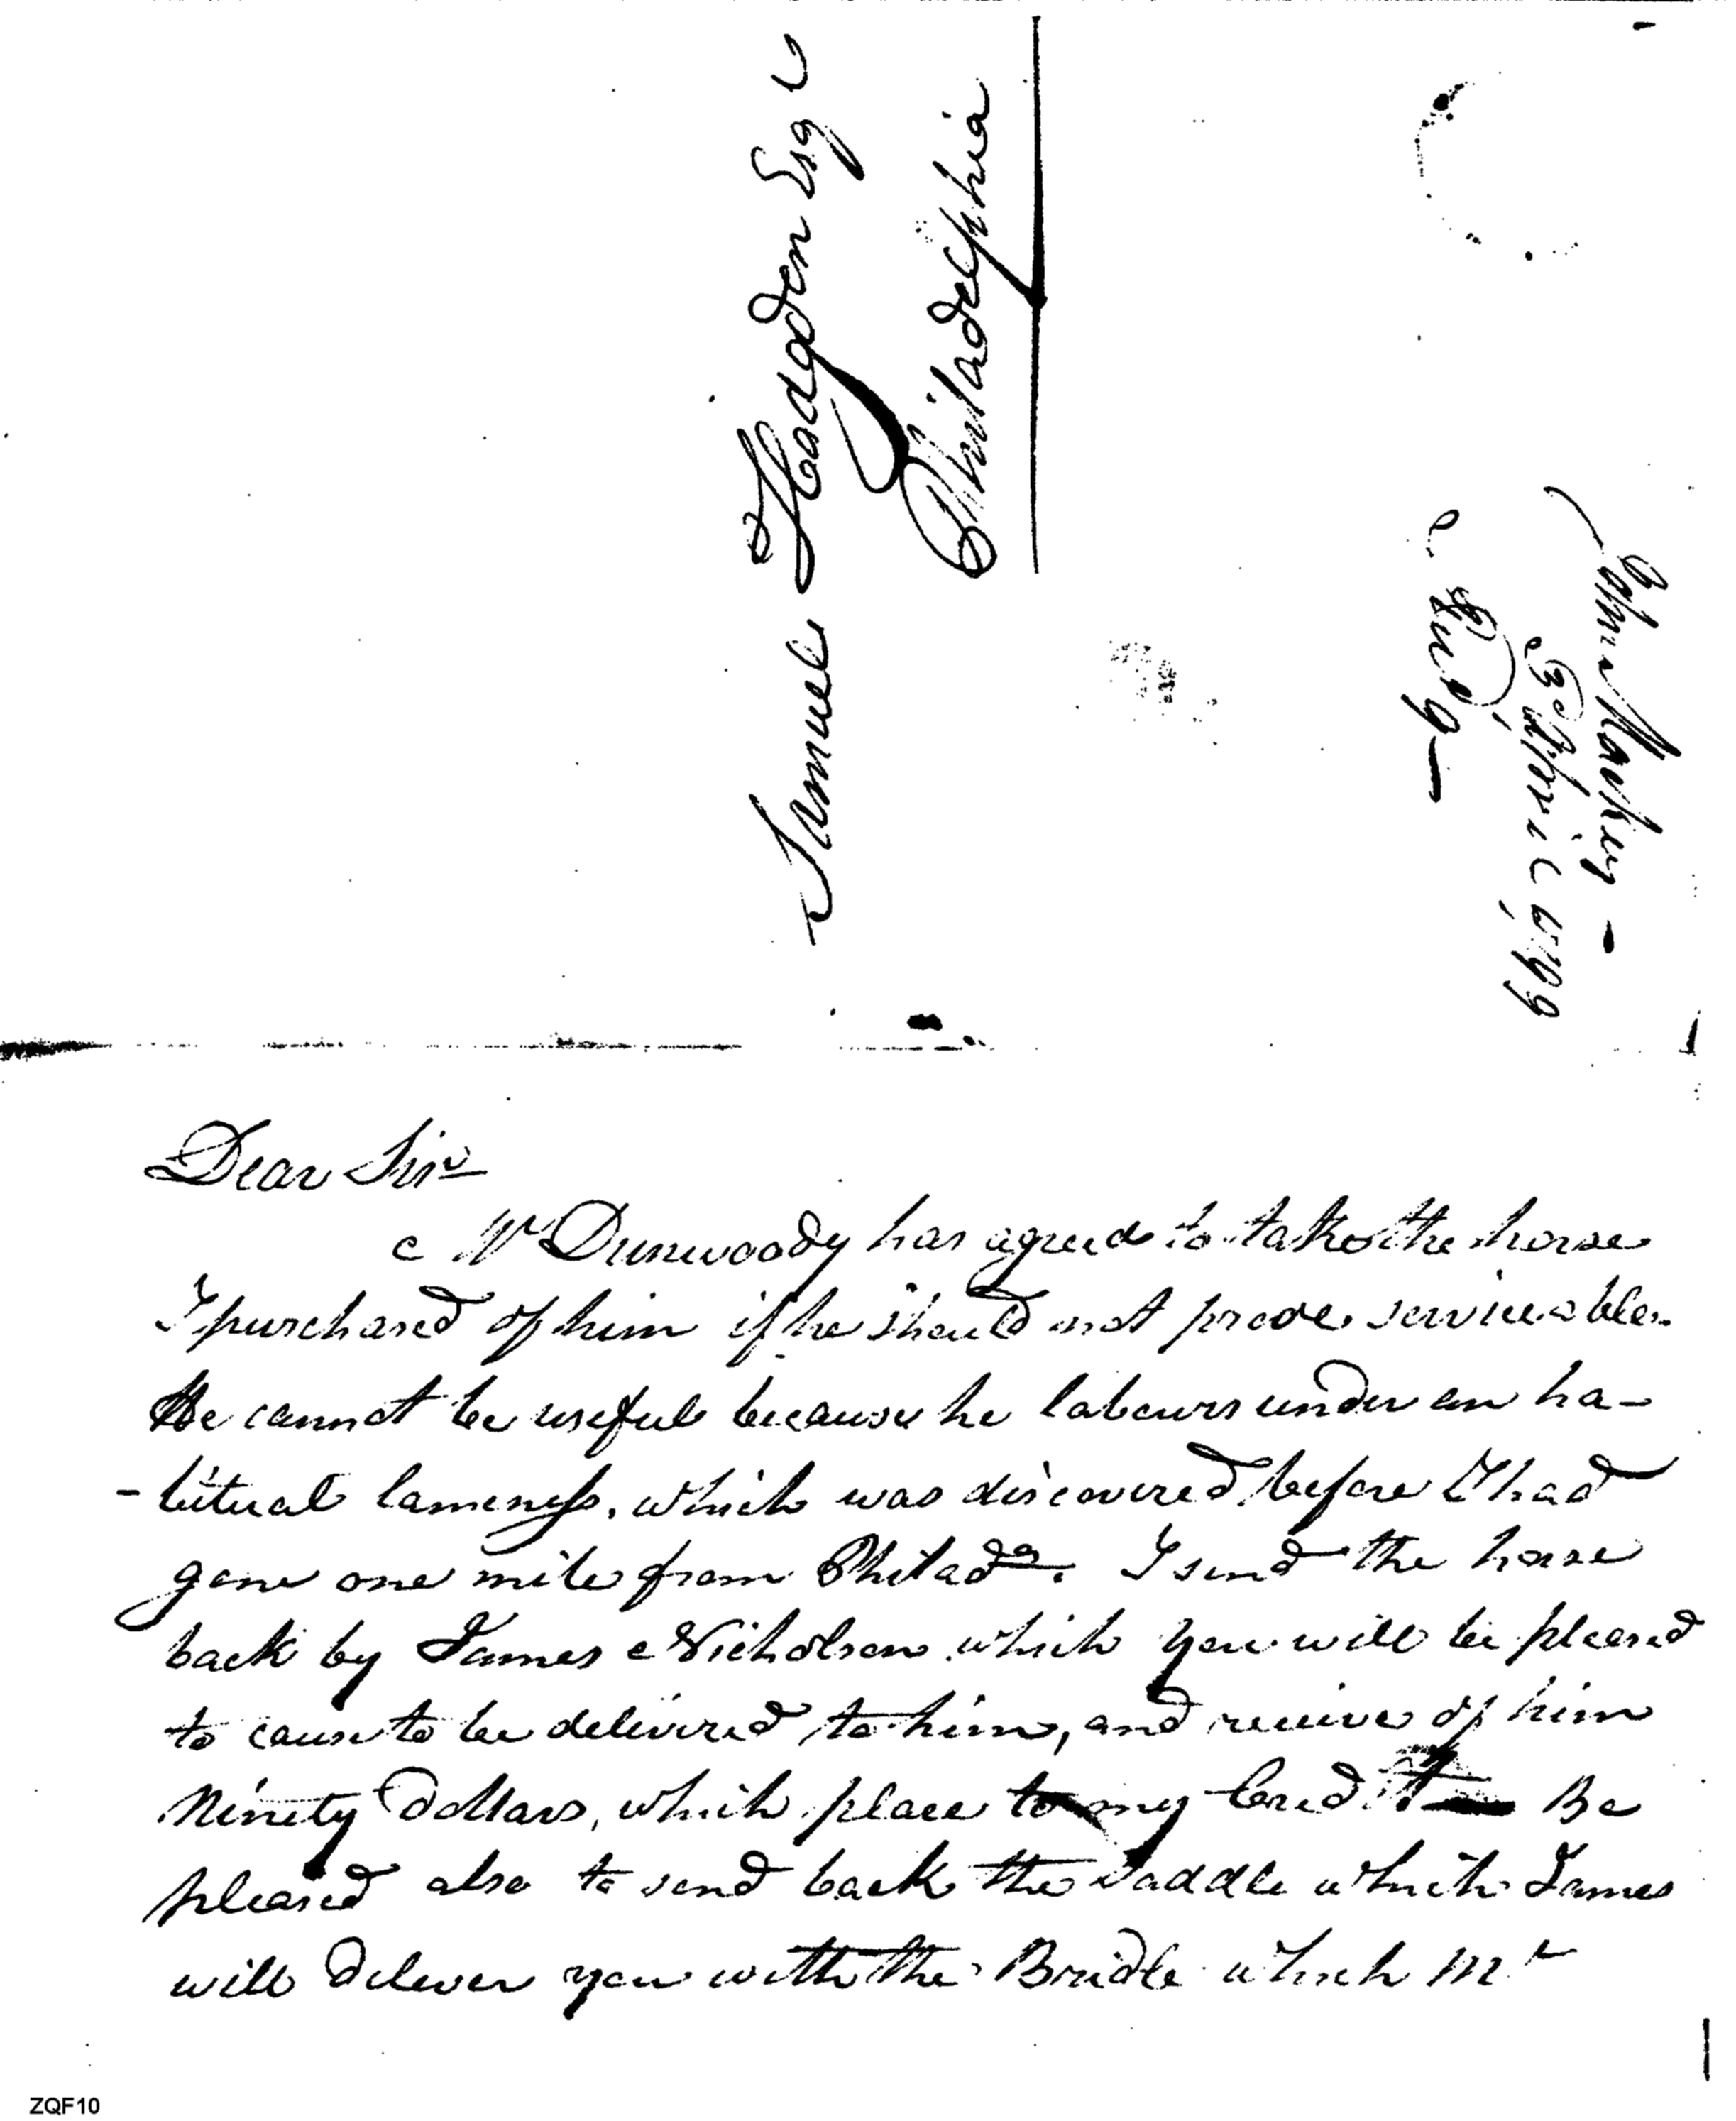 Samuel Hodgdon Esqr
Philadelphia
John Harris
April 1799
Dear Sir
Mr Dunwoody has agreed to take the horse
I purchased of him if he should not prove serviceable.
He cannot be useful because he labours under an ha-
-bitual lameness, which was discovered before I had
gone one mile from Philada. I send the horse
back by James Nicholson which you will be pleased
to cause to be delivered to him, and receive of him
Ninety Dollars, which place to my Credit Be
pleased also to send back the saddle which James
will deliver you with the Bridle which Mr
ZQF10